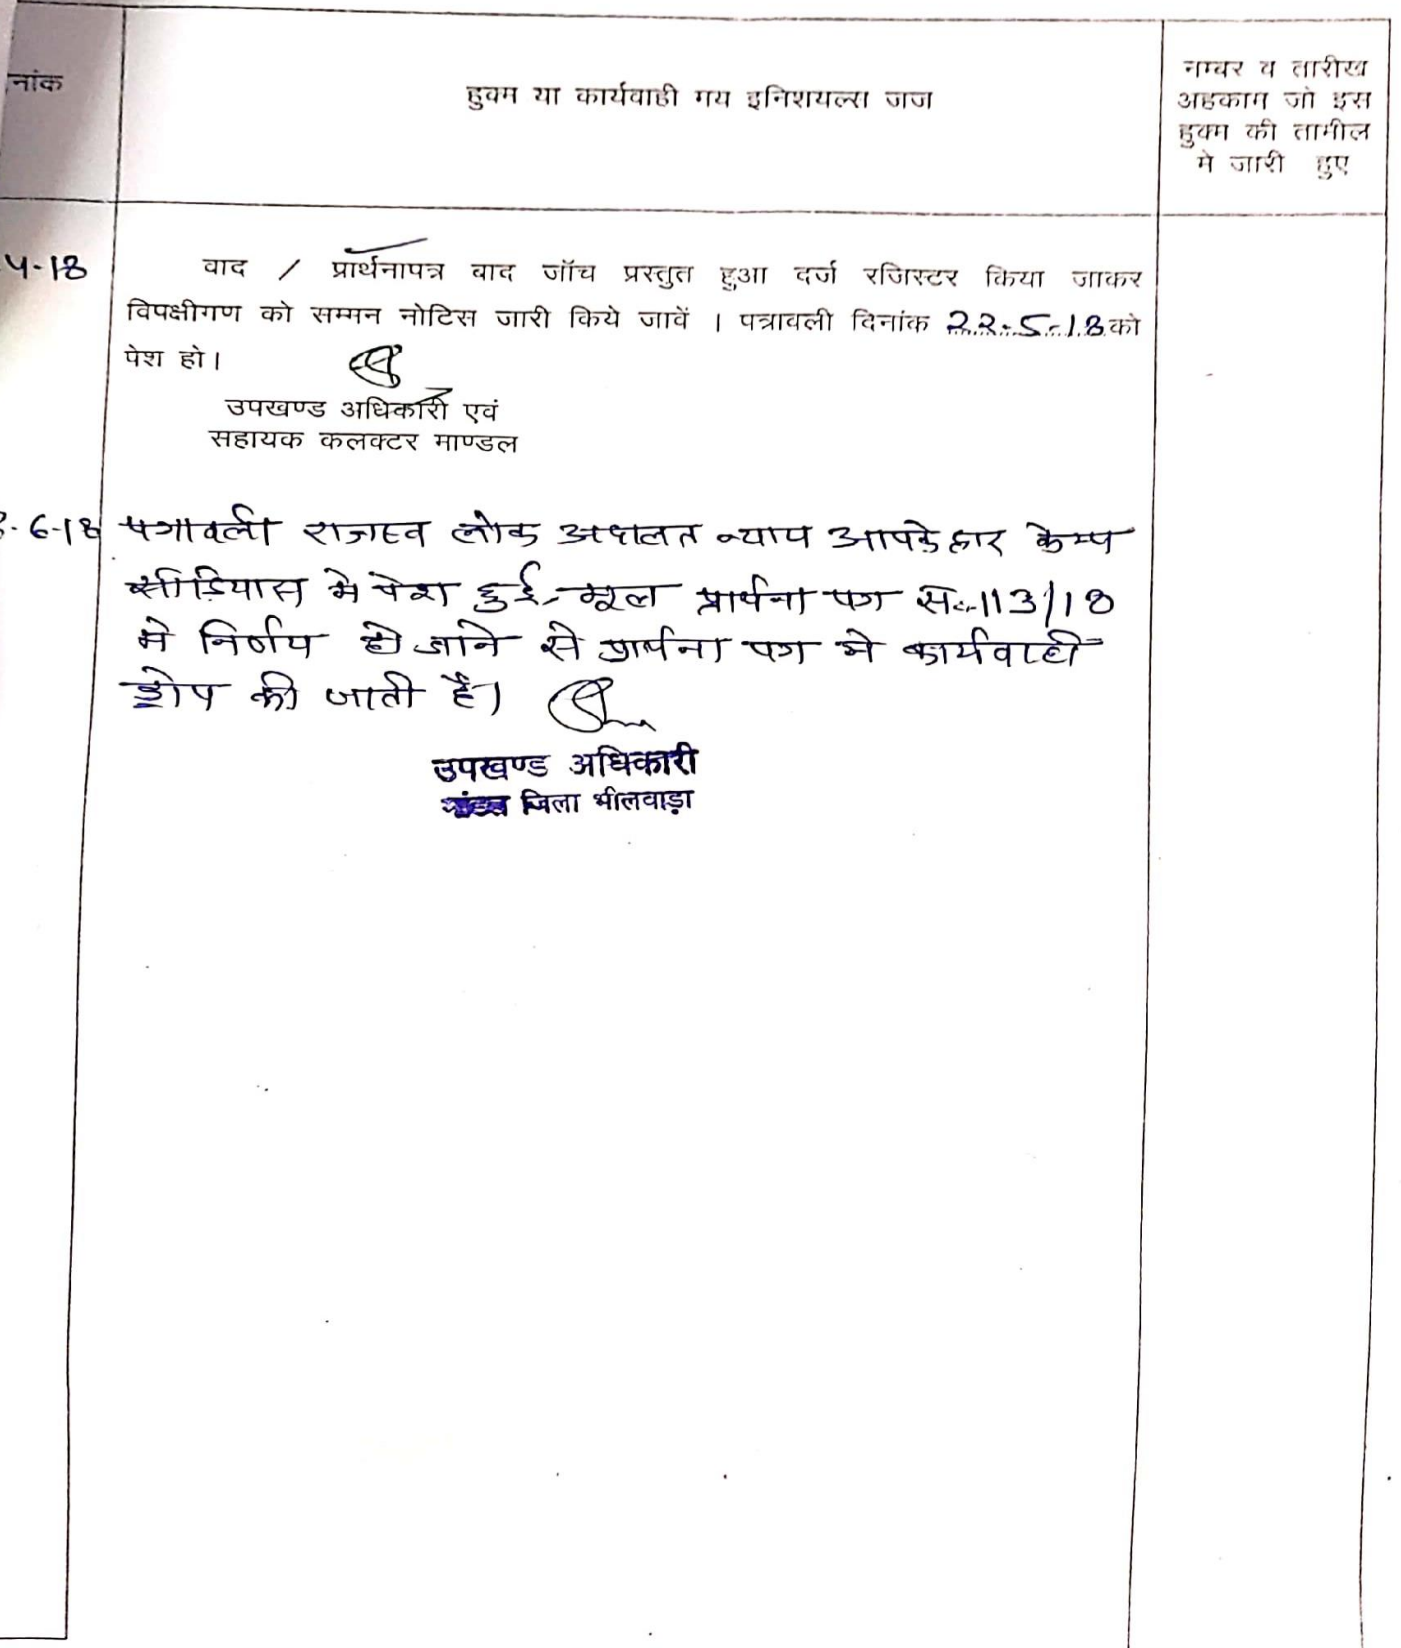 नांक
हुक्म या कार्यवाही मय इनिशयल्स जज
नम्बर व तारीख
अहकाम जो इस
हुक्म की तामील
मे जारी हुए
4-18
वाद / प्रार्थनापत्र बाद जॉच प्रस्तुत हुआ दर्ज रजिस्टर किया जाकर
विपक्षीगण को सम्मन नोटिस जारी किये जावें । पत्रावली दिनांक 22-5-18 को
पेश हो।
उपखण्ड अधिकारी एवं
सहायक कलक्टर माण्डल
-6-18 पत्रावली राजस्व लोक अदालत न्याय आपके द्वार केम्प
सीडियास मे पेश हुई, मूल प्रार्थना पत्र स. 113/18
मे निर्णय हो जाने से प्रार्थना पत्र मे कार्यवाही
ड्रोप की जाती है।
उपखण्ड अधिकारी
जिला भीलवाड़ा